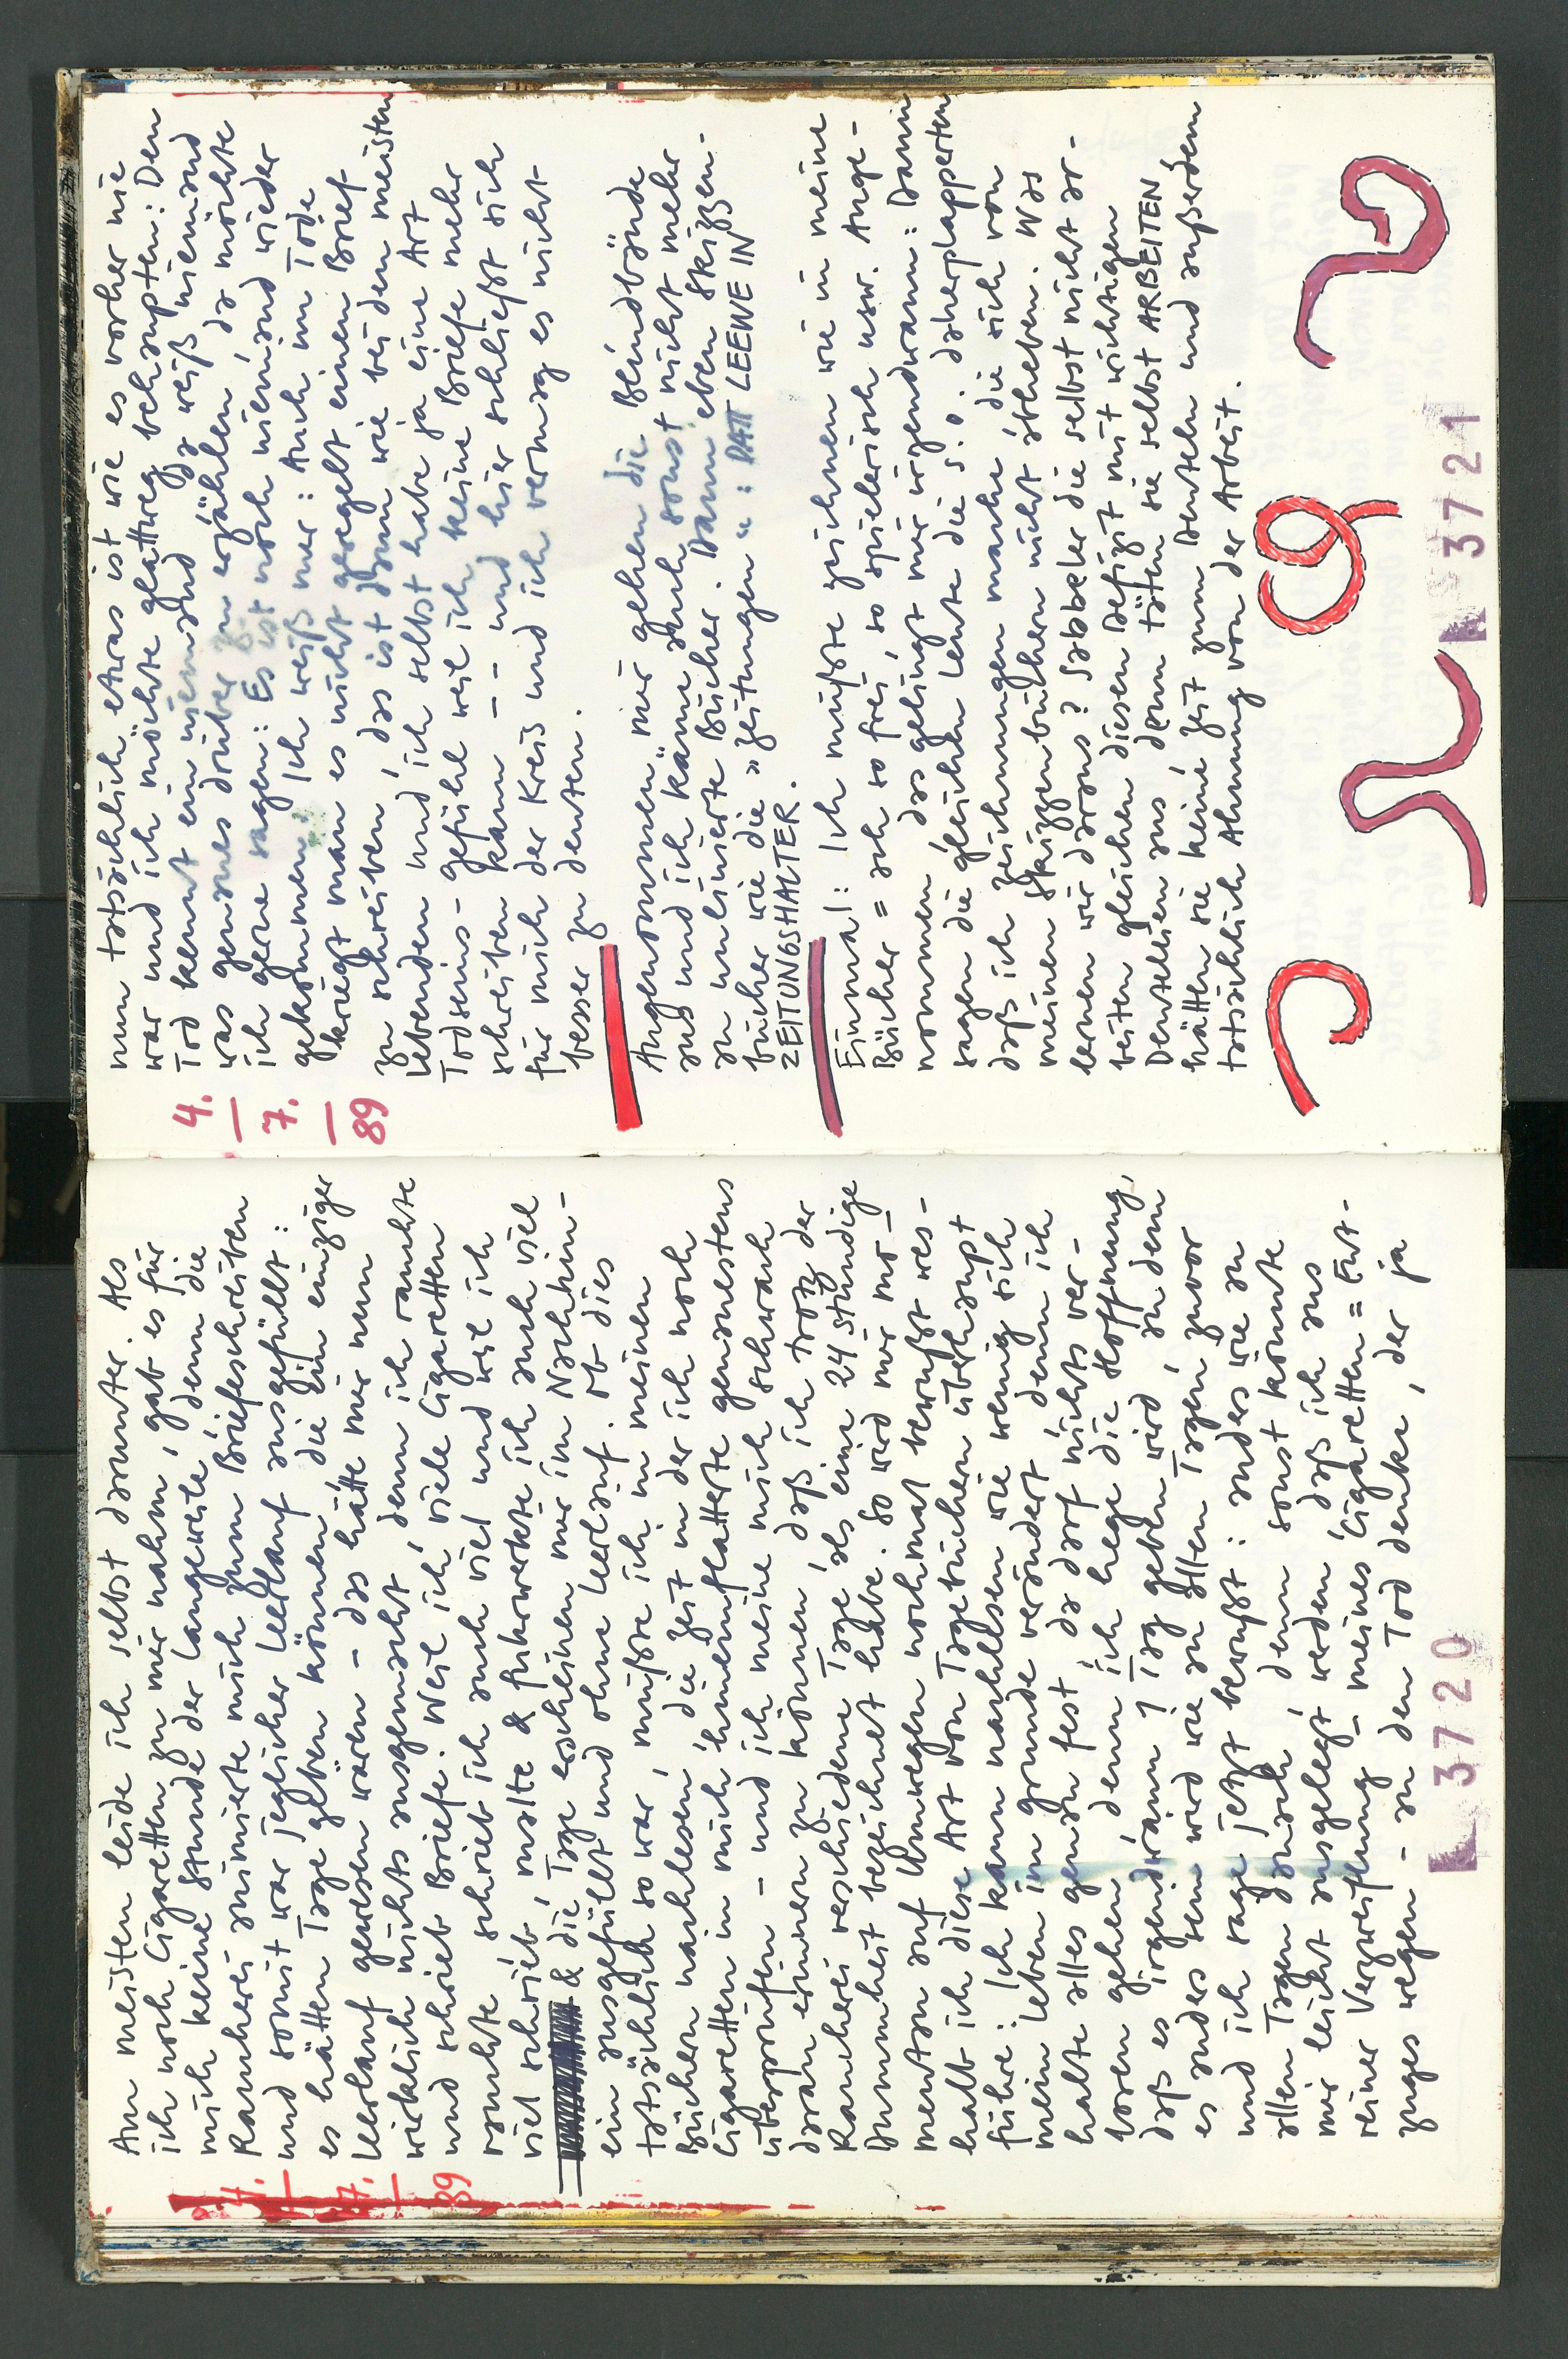 Am meisten leide ich selbst darunter. Als
ich noch Cigaretten zu mir nahm, gab es für
mich keine Stunde der Langeweile, denn die
Raucherei animierte mich zum Briefeschreiben
und somit war jeglicher Leerlauf ausgefüllt:
es hätten Tage geben können, die ein einziger
Leerlauf gewesen wären – das hätte mir nun
wirklich nichts ausgemacht, denn ich rauchte
und schrieb Briefe. Weil ich viele Cigaretten
rauchte schrieb ich auch viel und weil ich
viel schrieb, malte & fuhrwerkte ich auch viel
& die Tage erschienen mir im Nachhin-
ein ausgefüllt und ohne Leerlauf. Ob dies
tatsächlich so war, müßte ich in meinen
Büchern nachlesen, die Zeit in der ich noch
Cigaretten in mich hineinflatterte genauestens
überprüfen – und ich meine mich schwach
daran erinnern zu können, daß ich trotz der
Raucherei verschiedene Tage als eine 24stündige
Dummheit bezeichnet habe. So wird mir mo-
mentan auf Umwegen nochmal bewußt wes-
halb ich diese Art von Tagebüchern überhaupt
führe: Ich kann nachlesen wie wenig sich
mein Leben im Grunde verändert, denn ich
halte alles genau fest, da darf nichts ver-
loren gehen, denn ich hege die Hoffnung,
daß es irgendwann 1 Tag geben wird, an dem
es anders sein wird wie an allen Tagen zuvor
und ich sage jetzt bewußt: anders wie an
allen Tagen danach, denn sonst könnte
mir leicht ausgelegt werden, daß ich aus
reiner Verzweiflung – meines Cigaretten = Ent-
zuges wegen – an den Tod denke, der ja
3720
89
4.
7.
89
nun tatsächlich etwas ist wie es vorher nie
war und ich möchte glattweg behaupten: Den
Tod kennt ein niemand und da weiß niemand
was genaues drüber zu erzählen, da möchte
ich gerne sagen: Es ist noch niemand wieder
gekommen! Ich weiß nur: Auch im Tode
kriegt man es nicht geregelt einen Brief
zu schreiben, das ist dann wie bei den meisten
Lebenden und ich selbst habe ja eine Art
Todseins-Gefühl weil ich keine Briefe mehr
schreiben kann – – und hier schließt sich
für mich der Kreis und ich vermag es nicht
besser zu deuten.
Angenommen mir gehen die Blindbände
aus und ich käme auch sonst nicht mehr
an unlinierte Bücher. Dann eben Skizzen-
bücher wie die "Zeitungen": DATT LEEWE IN
ZEITUNGSHALTER.
Einmal: Ich müßte zeichnen wie in meine
Bücher = ach so frei, so spielerisch usw. Ange-
nommen das gelingt mir irgendwann: Dann
sagen die gleichen Leute die s.o. daherplapperten
daß ich Zeichnungen mache die sich von
meinen Skizzenbüchern nicht abheben. Was
lernen wir daraus? Sabbeler die selbst nicht ar-
beiten gleichen diesen Defizit mit wichtigen
Deuteleien aus, denn täten sie selbst ARBEITEN
hätten sie keine Zeit zum Deuteln und außerdem
tatsächlich Ahnung von der Arbeit.
3721